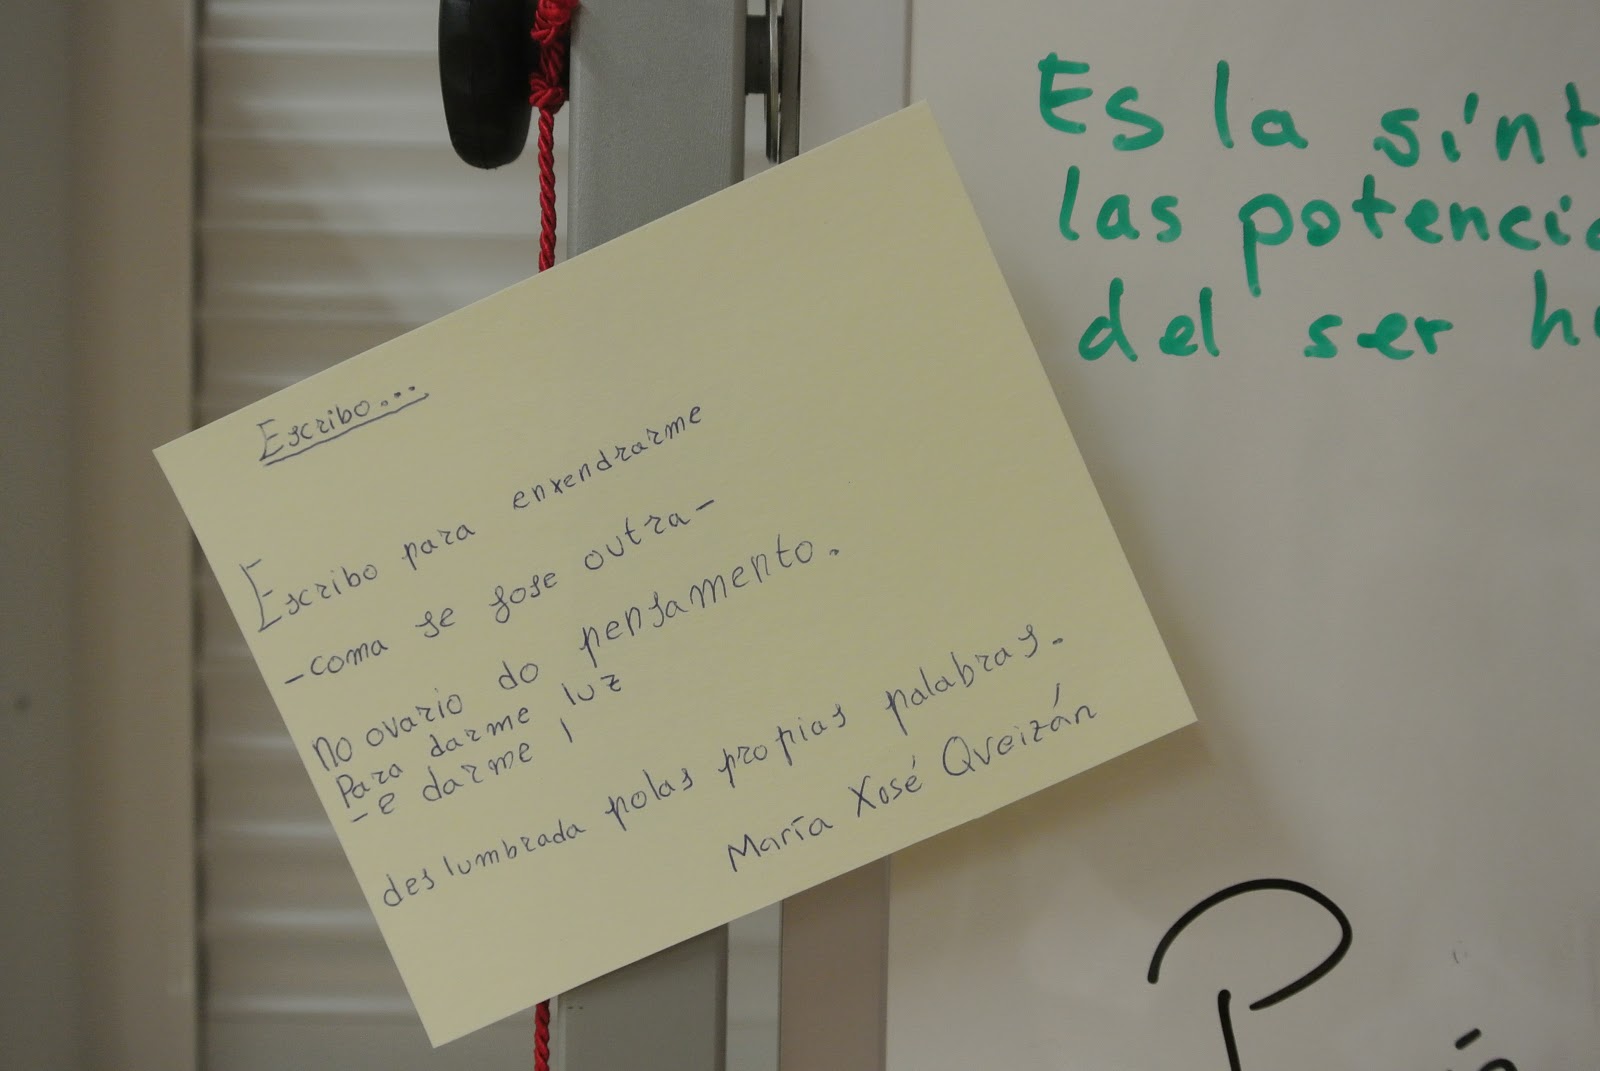 Escribo...
Escribo para enxendrarme
-coma se fose outra-
no ovario do pensamento.
Para darme luz
-e darme
deslumbrada polas propias palabras.
María Xosé Queizán
Es la sínt
las potenci
del ser h
P